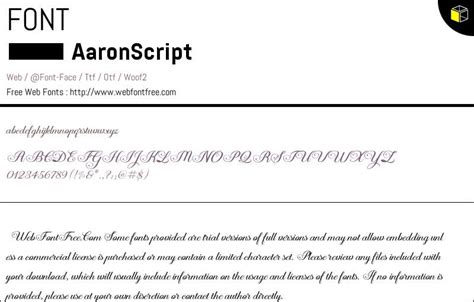 FONT
AaronScript
Web / @Font-Face / Ttf / Otf / Woof2
Free Web Fonts : http://www.webfontfree.com
abcdefghijklmnopqrstuvwxyz
ABCDEFGHIJKLMNOPQRSTUVWXYZ
0123456789 (!%&*.,?:;@#$)
WebFontFree.Com Some fonts provided are trial versions of full versions and may not allow embedding unl
ess a commercial license is purchased or may contain a limited character set. Please review any files included with
your download, which will usually include information on the usage and licenses of the fonts. If no information is
provided, please use at your own discretion or contact the author directly.